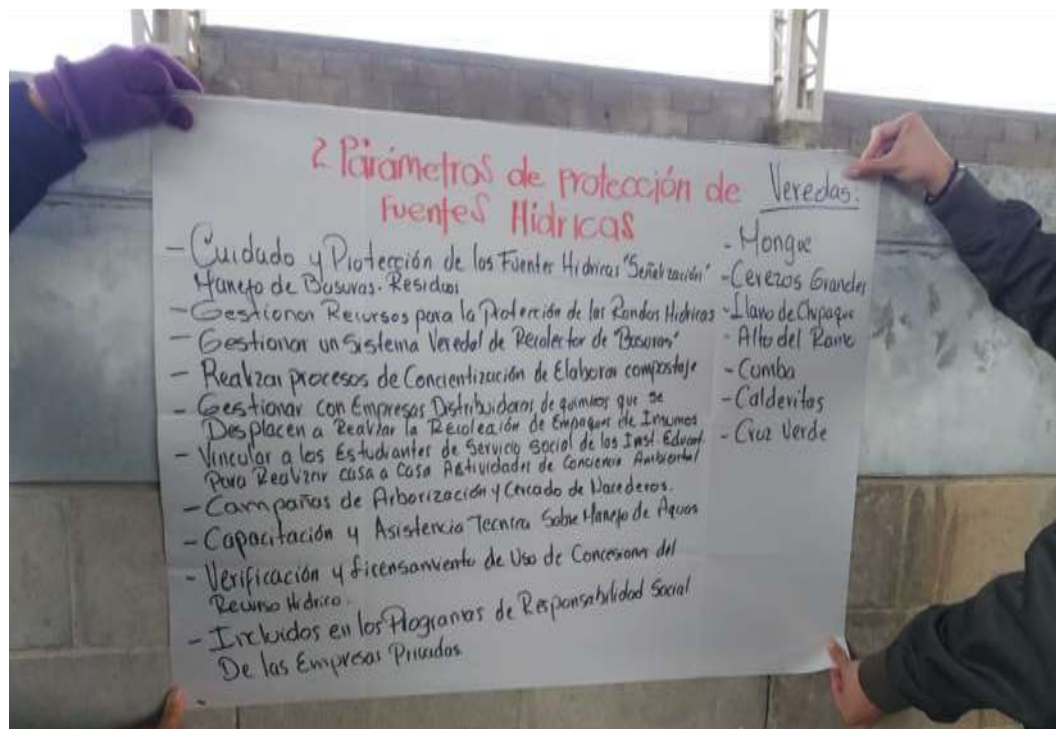 2 Parámetros de protección de
Fuentes Hidricas
- Cuidado y Protección de las Fuentes Hidricas "Señalización"
Manejo de Basuras. Residuos
- Gestionar Recursos para la Protección de las Rondas Hidricas
- Gestionar un Sistema Veredal de Recolector de "Basuras"
- Realizar procesos de Concientización de Elaborar compostaje
- Gestionar con Empresas Distribuidoras de quimicos que se
Desplacen a Realizar la Recoleación de Empaques de Insumos
- Vincular a los Estudiantes de Servicio Social de las Inst. Educat.
Para Realizar casa a Casa Actividades de Conciencia Ambiental
- Campañas de Arborización y Cercado de Nacederos.
- Capacitación y Asistencia Tecnica Sobre Manejo de Aguas
- Verificación y licensamiento de Uso de Concesiones del
Recurso Hidrico.
- Incluidos en los Programas de Responsabilidad Social
De las Empresas Privadas
Veredas:
- Mongue
- Cerezos Grandes
- Llano de Chipaque
- Alto del Ramo
- Cumba
- Calderitas
- Cruz Verde